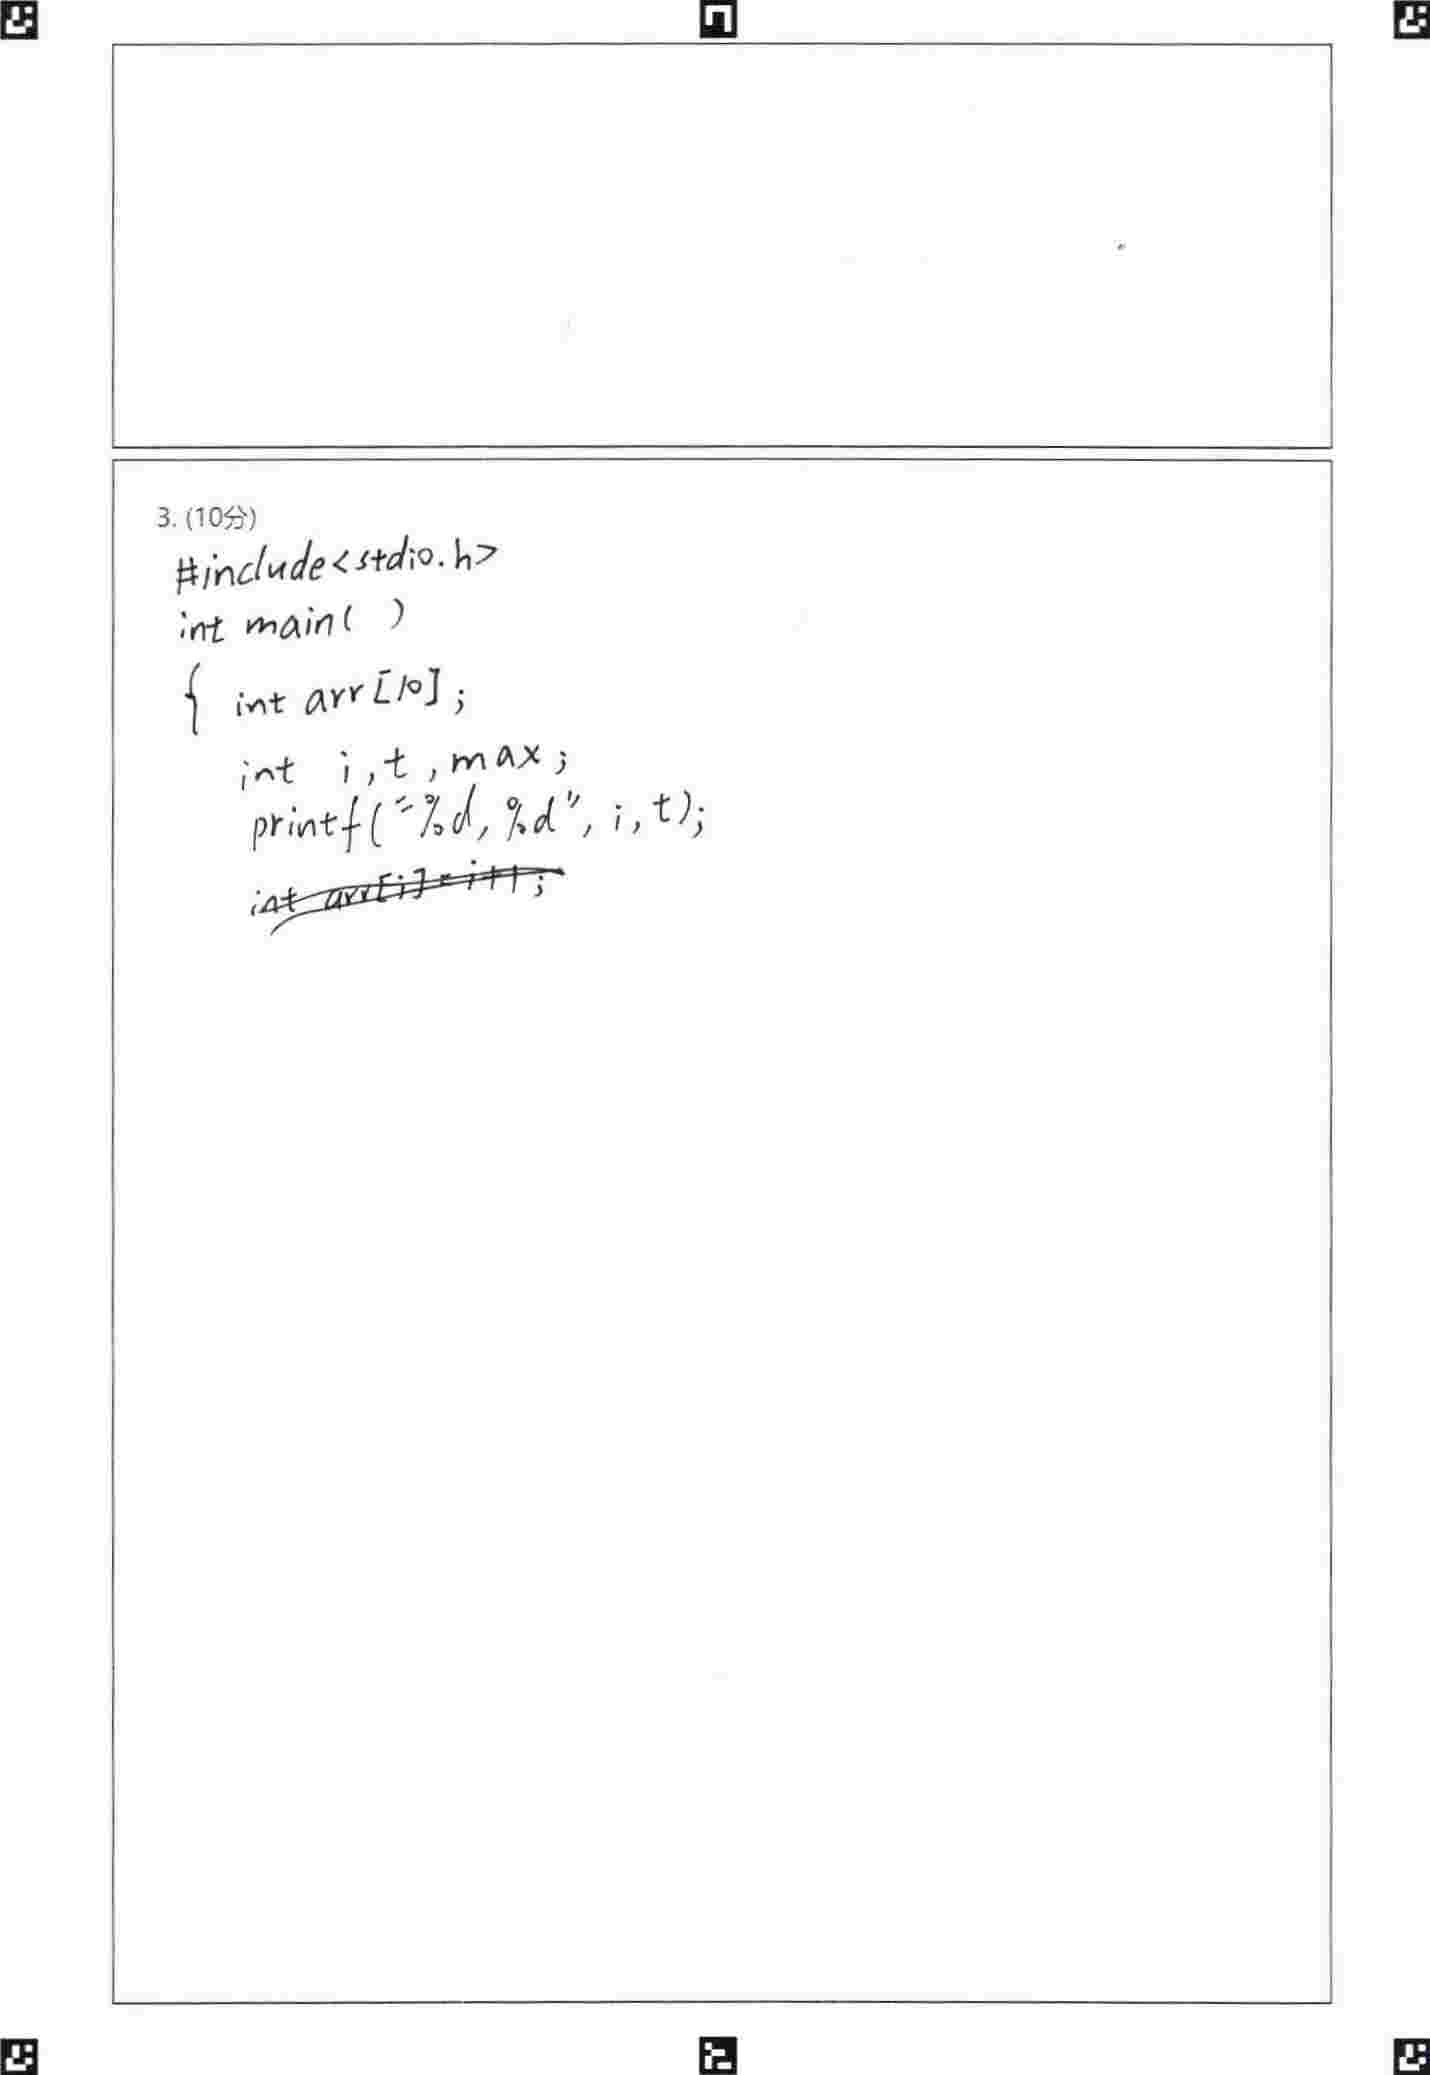 3. (10分)
#include<stdio.h>
int main( )
{ int arr[10];
int i,t,max;
printf("%d,%d",i,t);
int arr[i]=i+1;